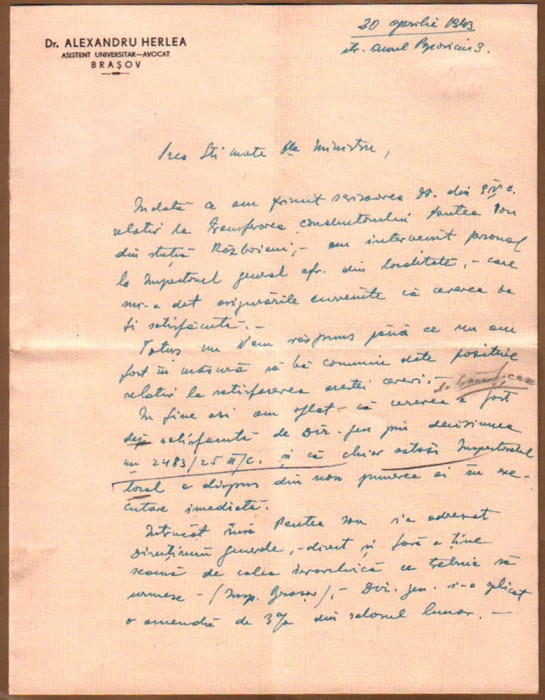 Dr. ALEXANDRU HERLEA
ASISTENT UNIVERSITAR—AVOCAT
BRAȘOV
20 aprilie 1943
str. Aurel 3.
Prea Stimate Dle Ministru,
Îndată ce am primit scrisoarea Dv. din 9 IV c.
relativ la transferarea conductorului Pantea Ion
din stația Războieni, – am intervenit personal
la Inspectorul general din localitate, – care
mi-a dat asigurările cuvenite că cererea va
fi satisfăcută. –
Totuș nu V-am răspuns până ce nu am
fost în măsură să Vă comunic date pozitive
relativ la satisfacerea acestei cereri. –
În fine azi am aflat – că cererea a fost
deja satisfăcută de Dir. gen prin decisiunea
nr 2483/25 III/c. și că chiar astăzi Inspectoratul
a dispus din nou punerea ei în exe-
cutare imediată.
Întrucât însă Pantea Ion s'a adresat
Direcțiunii generale, – direct și fără a ține
seamă de calea ierarhică ce trebuia să
urmeze – (Insp. Brașov), – Dir. gen. i-a aplicat
o amendă de 3% din salarul lunar. –